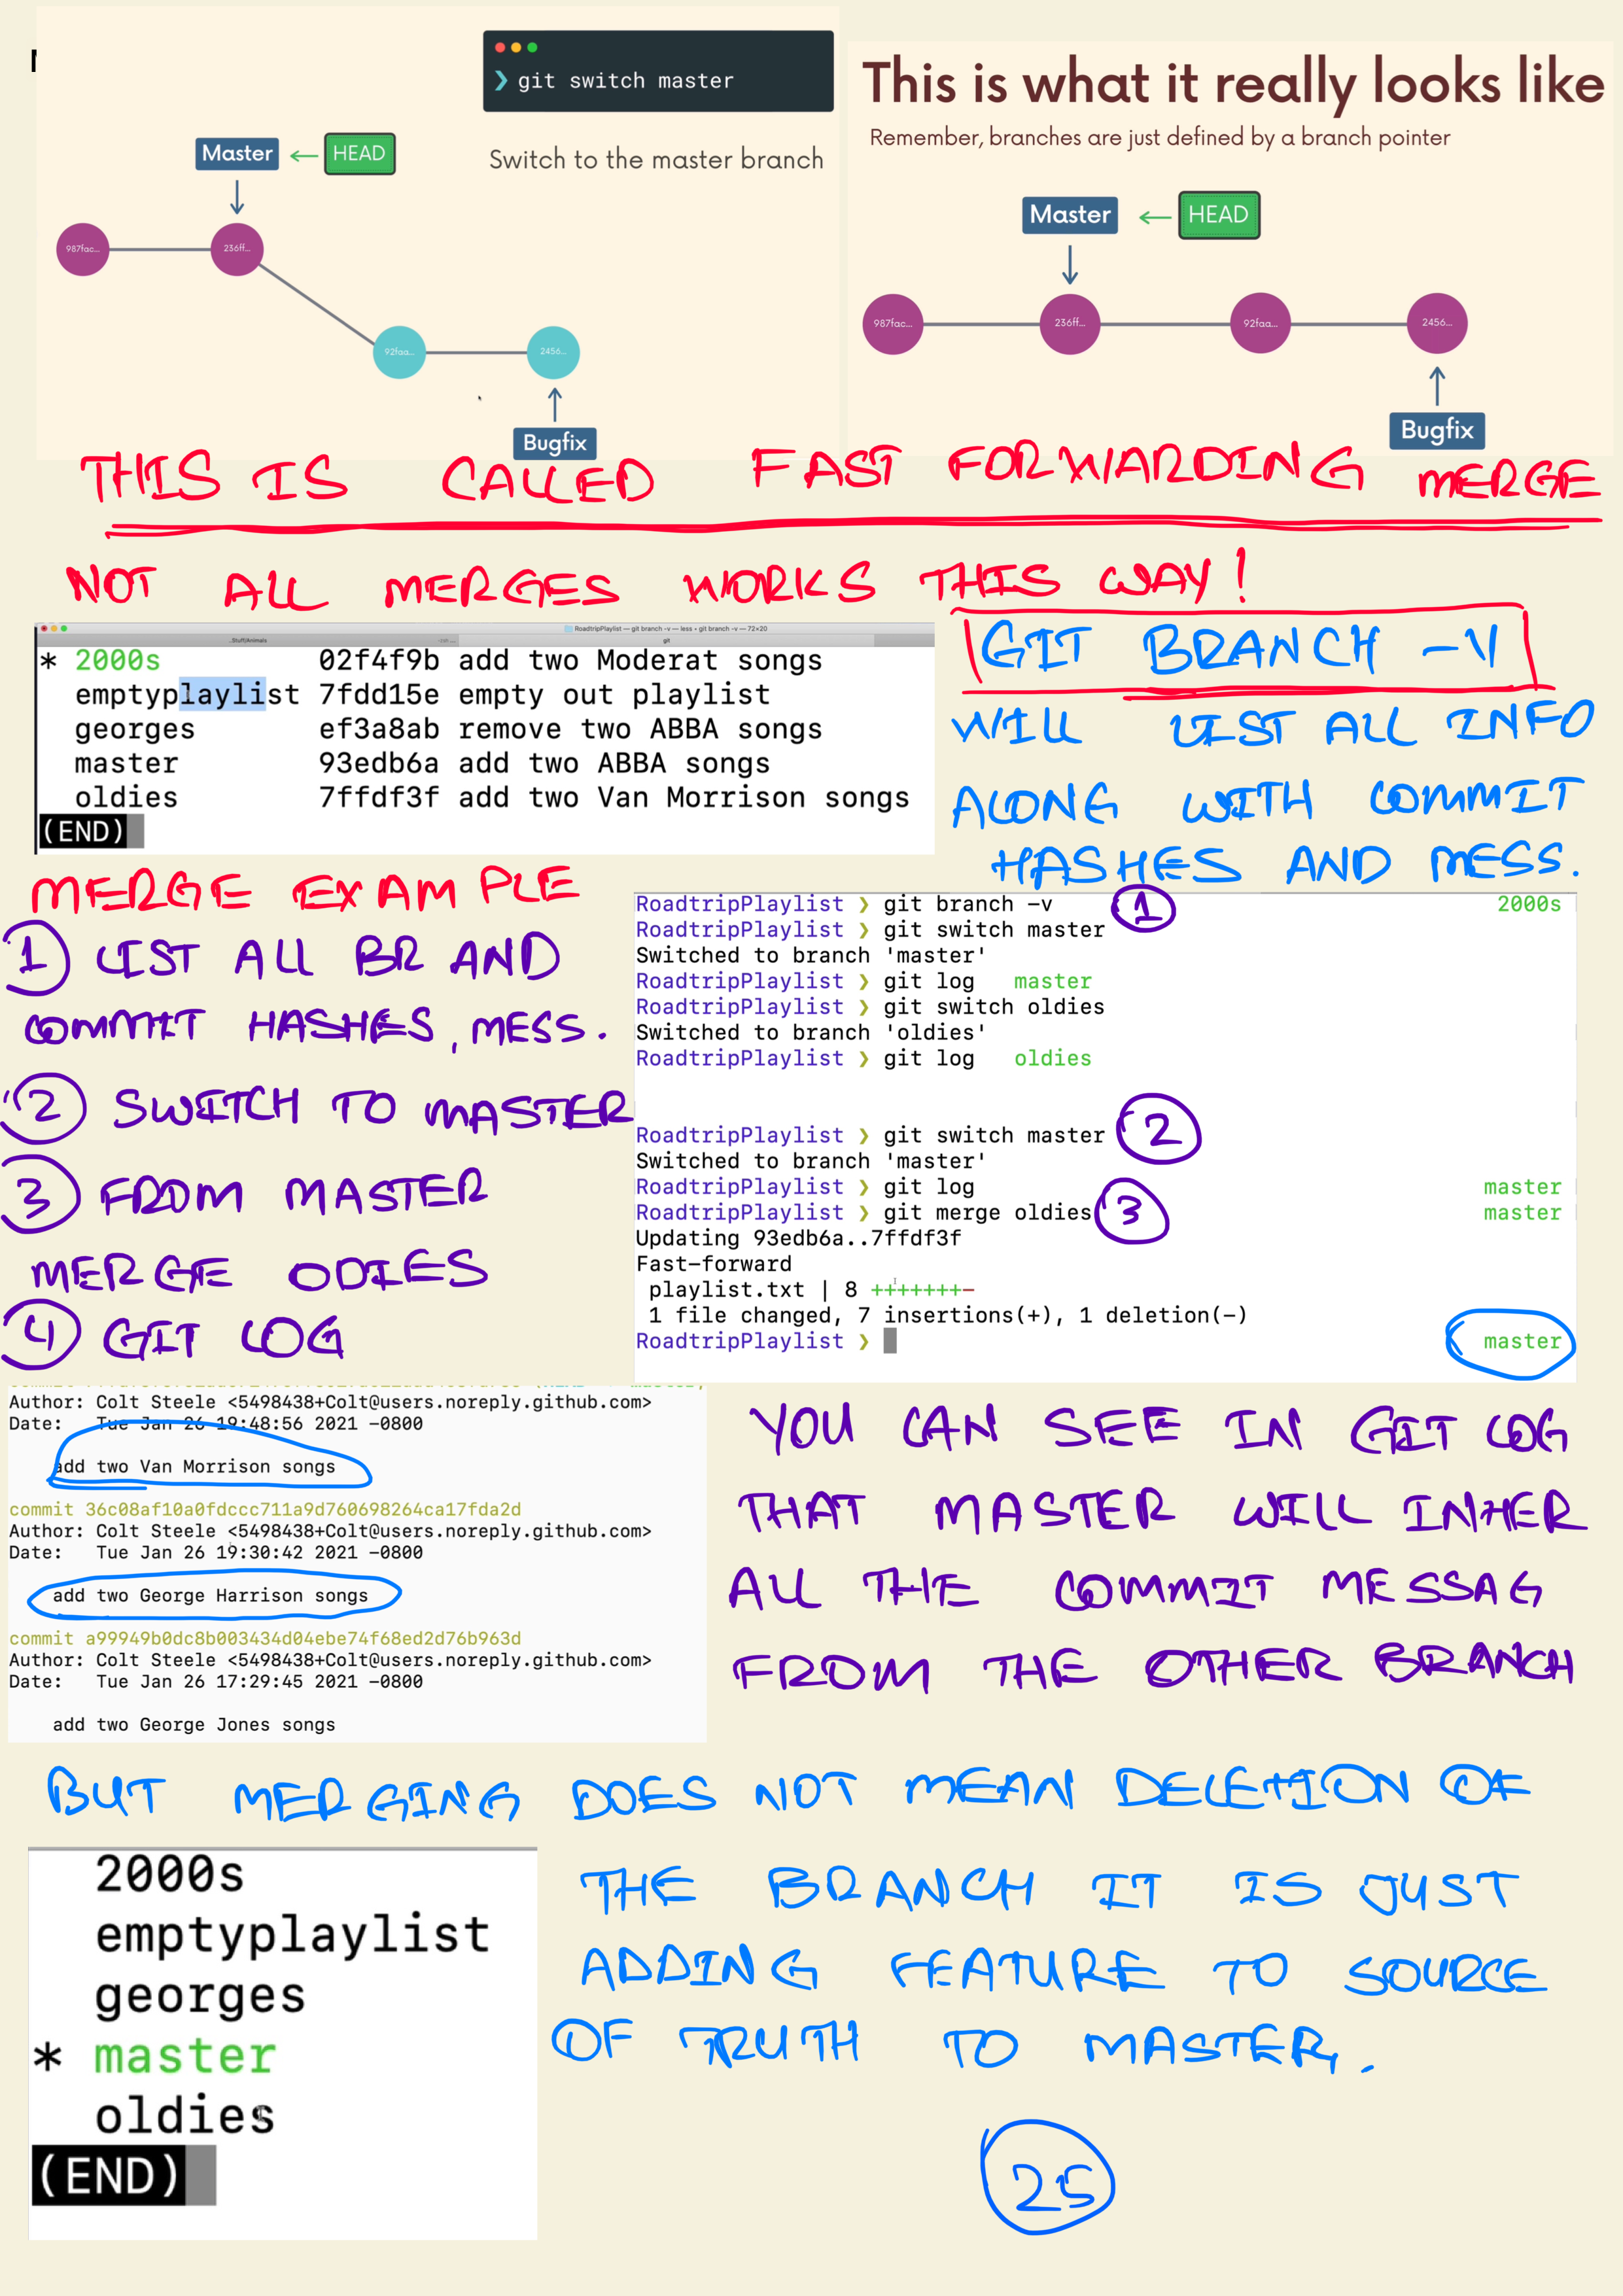 git switch master
Switch to the master branch
Master
HEAD
987fac...
236ff...
92faa...
2456...
Bugfix
This is what it really looks like
Remember, branches are just defined by a branch pointer
Master
HEAD
987fac...
236ff...
92faa...
2456...
Bugfix
THIS IS CALLED FAST FORWARDING MERGE
NOT ALL MERGES WORKS THIS WAY!
RoadtripPlaylist — git branch -v — less • git branch -v — 72×20
..Stuff/Animals
git
* 2000s 02f4f9b add two Moderat songs
emptyplaylist 7fdd15e empty out playlist
georges ef3a8ab remove two ABBA songs
master 93edb6a add two ABBA songs
oldies 7ffdf3f add two Van Morrison songs
(END)
GIT BRANCH -V
WILL LIST ALL INFO
ALONG WITH COMMIT
HASHES AND MESS.
MERGE EXAMPLE
1 LIST ALL BR AND
COMMIT HASHES, MESS.
2 SWITCH TO MASTER
3 FROM MASTER
MERGE ODIES
4 GIT LOG
RoadtripPlaylist ❯ git branch -v 1 2000s
RoadtripPlaylist ❯ git switch master
Switched to branch 'master'
RoadtripPlaylist ❯ git log master
RoadtripPlaylist ❯ git switch oldies
Switched to branch 'oldies'
RoadtripPlaylist ❯ git log oldies
RoadtripPlaylist ❯ git switch master 2
Switched to branch 'master'
RoadtripPlaylist ❯ git log master
RoadtripPlaylist ❯ git merge oldies 3 master
Updating 93edb6a..7ffdf3f
Fast-forward
playlist.txt | 8 +++++++-
1 file changed, 7 insertions(+), 1 deletion(-)
RoadtripPlaylist ❯ master
Author: Colt Steele <5498438+Colt@users.noreply.github.com>
Date: Tue Jan 26 19:48:56 2021 -0800
add two Van Morrison songs
commit 36c08af10a0fdccc711a9d760698264ca17fda2d
Author: Colt Steele <5498438+Colt@users.noreply.github.com>
Date: Tue Jan 26 19:30:42 2021 -0800
add two George Harrison songs
commit a99949b0dc8b003434d04ebe74f68ed2d76b963d
Author: Colt Steele <5498438+Colt@users.noreply.github.com>
Date: Tue Jan 26 17:29:45 2021 -0800
add two George Jones songs
YOU CAN SEE IN GIT LOG
THAT MASTER WILL INHER
ALL THE COMMIT MESSAG
FROM THE OTHER BRANCH
BUT MERGING DOES NOT MEAN DELETION OF
THE BRANCH IT IS JUST
ADDING FEATURE TO SOURCE
OF TRUTH TO MASTER.
2000s
emptyplaylist
georges
* master
oldies
(END)
25